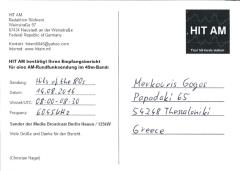 HIT AM
Redaktion Südwest
Weinstraße 97
67434 Neustadt an der Weinstraße
Federal Republic of Germany
HIT AM bestätigt Ihren Empfangsbericht
für eine AM-Rundfunksendung im 49m-Band:
Sendung: Hits of the 80s
Datum: 14.08.2016
Uhrzeit/UTC: 08:00-08:30
Frequenz: 6045kHz
Sender der Media Broadcast Berlin Nauen / 125kW
Viele Grüße und Danke für den Bericht.
(Christian Nagel)
HIT AM
Your hit music station
Merkouris Gogos
Papadaki 65
54248 Thessaloniki
Greece